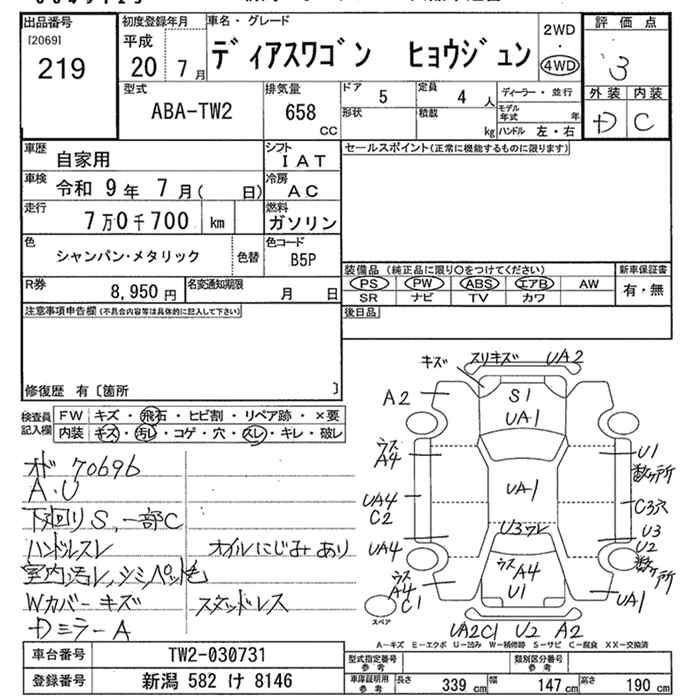 出品番号
[2069]
219
初度登録年月
平成
20 7 月
車名・グレード
ディアスワゴン ヒョウジュン
2WD
・
4WD
評価点
3
外装 内装
D C
型式
ABA-TW2
排気量
658 CC
ドア 5
定員 4 人
形状
積載 kg
ディーラー・並行
モデル年式 年
ハンドル 左・右
車歴
自家用
シフト
IAT
車検
令和 9 年 7 月( 日)
冷房
AC
走行
7 万 0 千 700 km
燃料
ガソリン
色
シャンパン・メタリック
色替
色コード
B5P
R券
8,950 円
名変通知期限
月 日
セールスポイント(正常に機能するものに限ります)
装備品 (純正品に限り○をつけてください)
PS PW ABS エアB AW
SR ナビ TV カワ
新車保証書
有・無
後日品
注意事項申告欄(不具合内容等は具体的に記入して下さい)
修復歴 有〔箇所 〕
検査員記入欄
FW キズ・飛石・ヒビ割・リペア跡・×要
内装 キズ・汚レ・コゲ・穴・スレ・キレ・破レ
オド 70696
A.U
下廻りS、一部C
ハンドルスレ オイルにじみあり
室内汚レ,シミ,ペット色
Wカバーキズ スタッドレス
DミラーA
キズ スリキズ UA2
A2
S1
UA1
ウスA4
U1
数ヶ所
UA4
C2
UA1
C3穴
U3ウレ
U3
UA4
U2
数ヶ所
ウスA4
U1
ウスA4
C1
UA1
スペア
UA2C1 U2 A2
A-キズ E-エクボ U-凹み W-補修跡 S-サビ C-腐食 XX-交換済
車台番号
TW2-030731
登録番号
新潟 582 け 8146
型式指定番号
参考
類別区分番号
参考
車庫証明用
参考
長さ 339 cm
幅 147 cm
高さ 190 cm